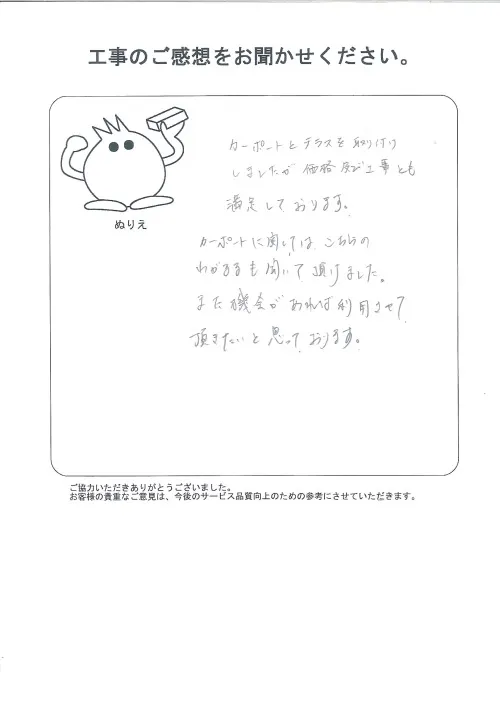 工事のご感想をお聞かせください。
ぬりえ
カーポートとテラスを取り付け
しましたが価格及び工事とも
満足しております。
カーポートに関しては こちらの
わがままも聞いて頂けました。
また機会があれば利用させて
頂きたいと思っております。
ご協力いただきありがとうございました。
お客様の貴重なご意見は、今後のサービス品質向上のための参考にさせていただきます。